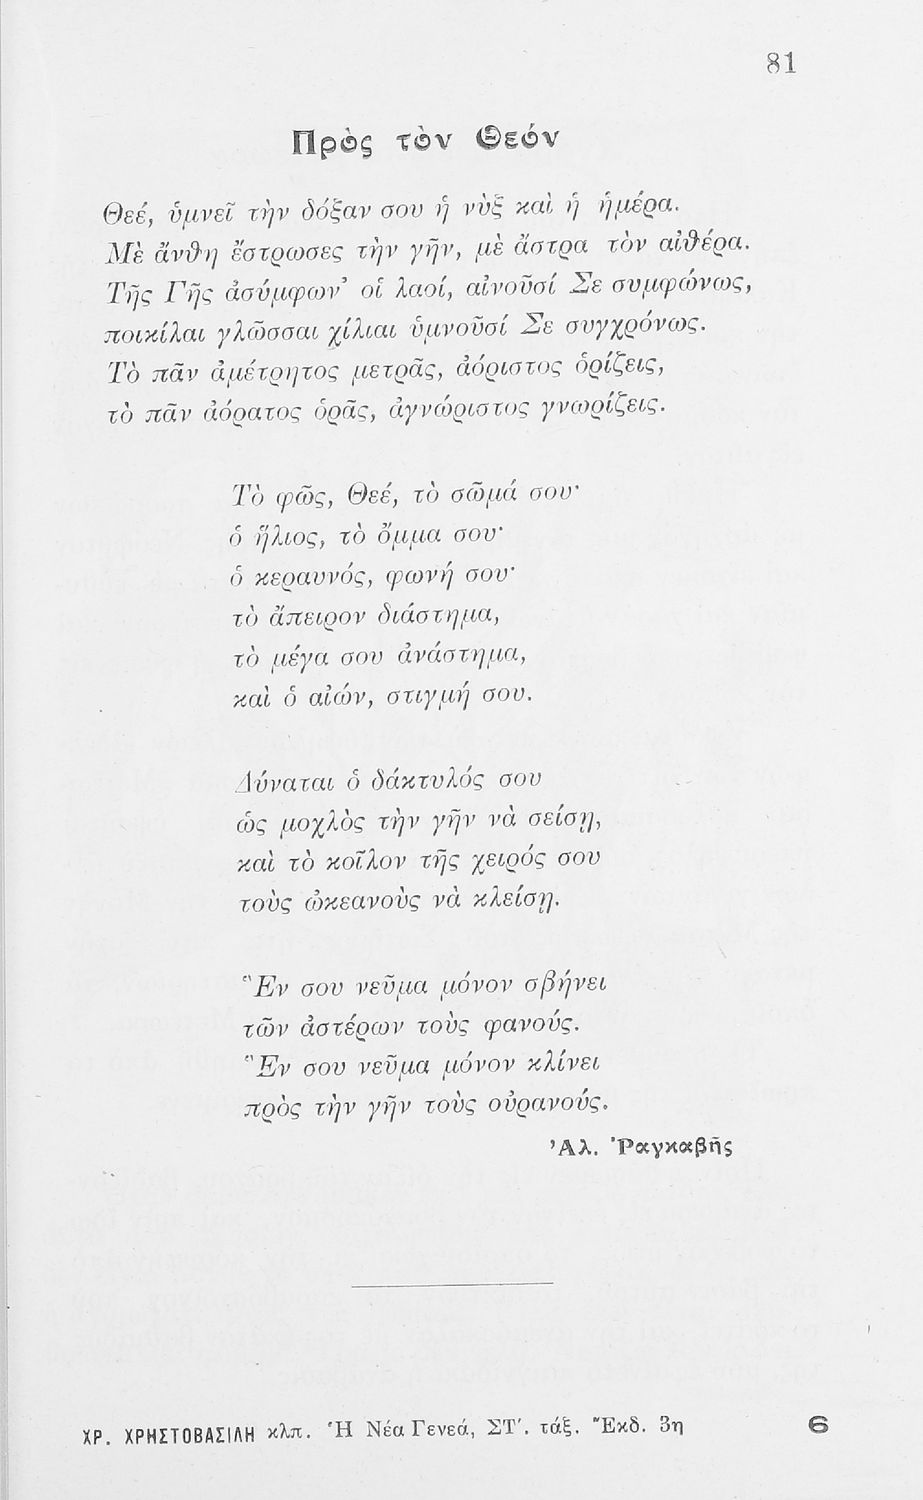 81
Πρὸς τὸν Θεόν
Θεέ, ὑμνεῖ τὴν δόξαν σου ἡ νὺξ καὶ ἡ ἡμέρα.
Μὲ ἄνθη ἔστρωσες τὴν γῆν, μὲ ἄστρα τὸν αἰθέρα.
Τῆς Γῆς ἀσύμφων' οἱ λαοί, αἰνοῦσί Σε συμφώνως,
ποικίλαι γλῶσσαι χίλιαι ὑμνοῦσί Σε συγχρόνως.
Τὸ πᾶν ἀμέτρητος μετρᾶς, ἀόριστος ὁρίζεις,
τὸ πᾶν ἀόρατος ὁρᾶς, ἀγνώριστος γνωρίζεις.
Τὸ φῶς, Θεέ, τὸ σῶμά σου·
ὁ ἥλιος, τὸ ὄμμα σου·
ὁ κεραυνός, φωνή σου·
τὸ ἄπειρον διάστημα,
τὸ μέγα σου ἀνάστημα,
καὶ ὁ αἰών, στιγμή σου.
Δύναται ὁ δάκτυλός σου
ὡς μοχλὸς τὴν γῆν νὰ σείσῃ,
καὶ τὸ κοῖλον τῆς χειρός σου
τοὺς ὠκεανοὺς νὰ κλείσῃ.
Ἓν σου νεῦμα μόνον σβήνει
τῶν ἀστέρων τοὺς φανούς.
Ἓν σου νεῦμα μόνον κλίνει
πρὸς τὴν γῆν τοὺς οὐρανούς.
Ἀλ. Ῥαγκαβῆς
ΧΡ. ΧΡΗΣΤΟΒΑΣΙΛΗ κλπ. Ἡ Νέα Γενεά, ΣΤ΄. τάξ. Ἔκδ. 3η 6